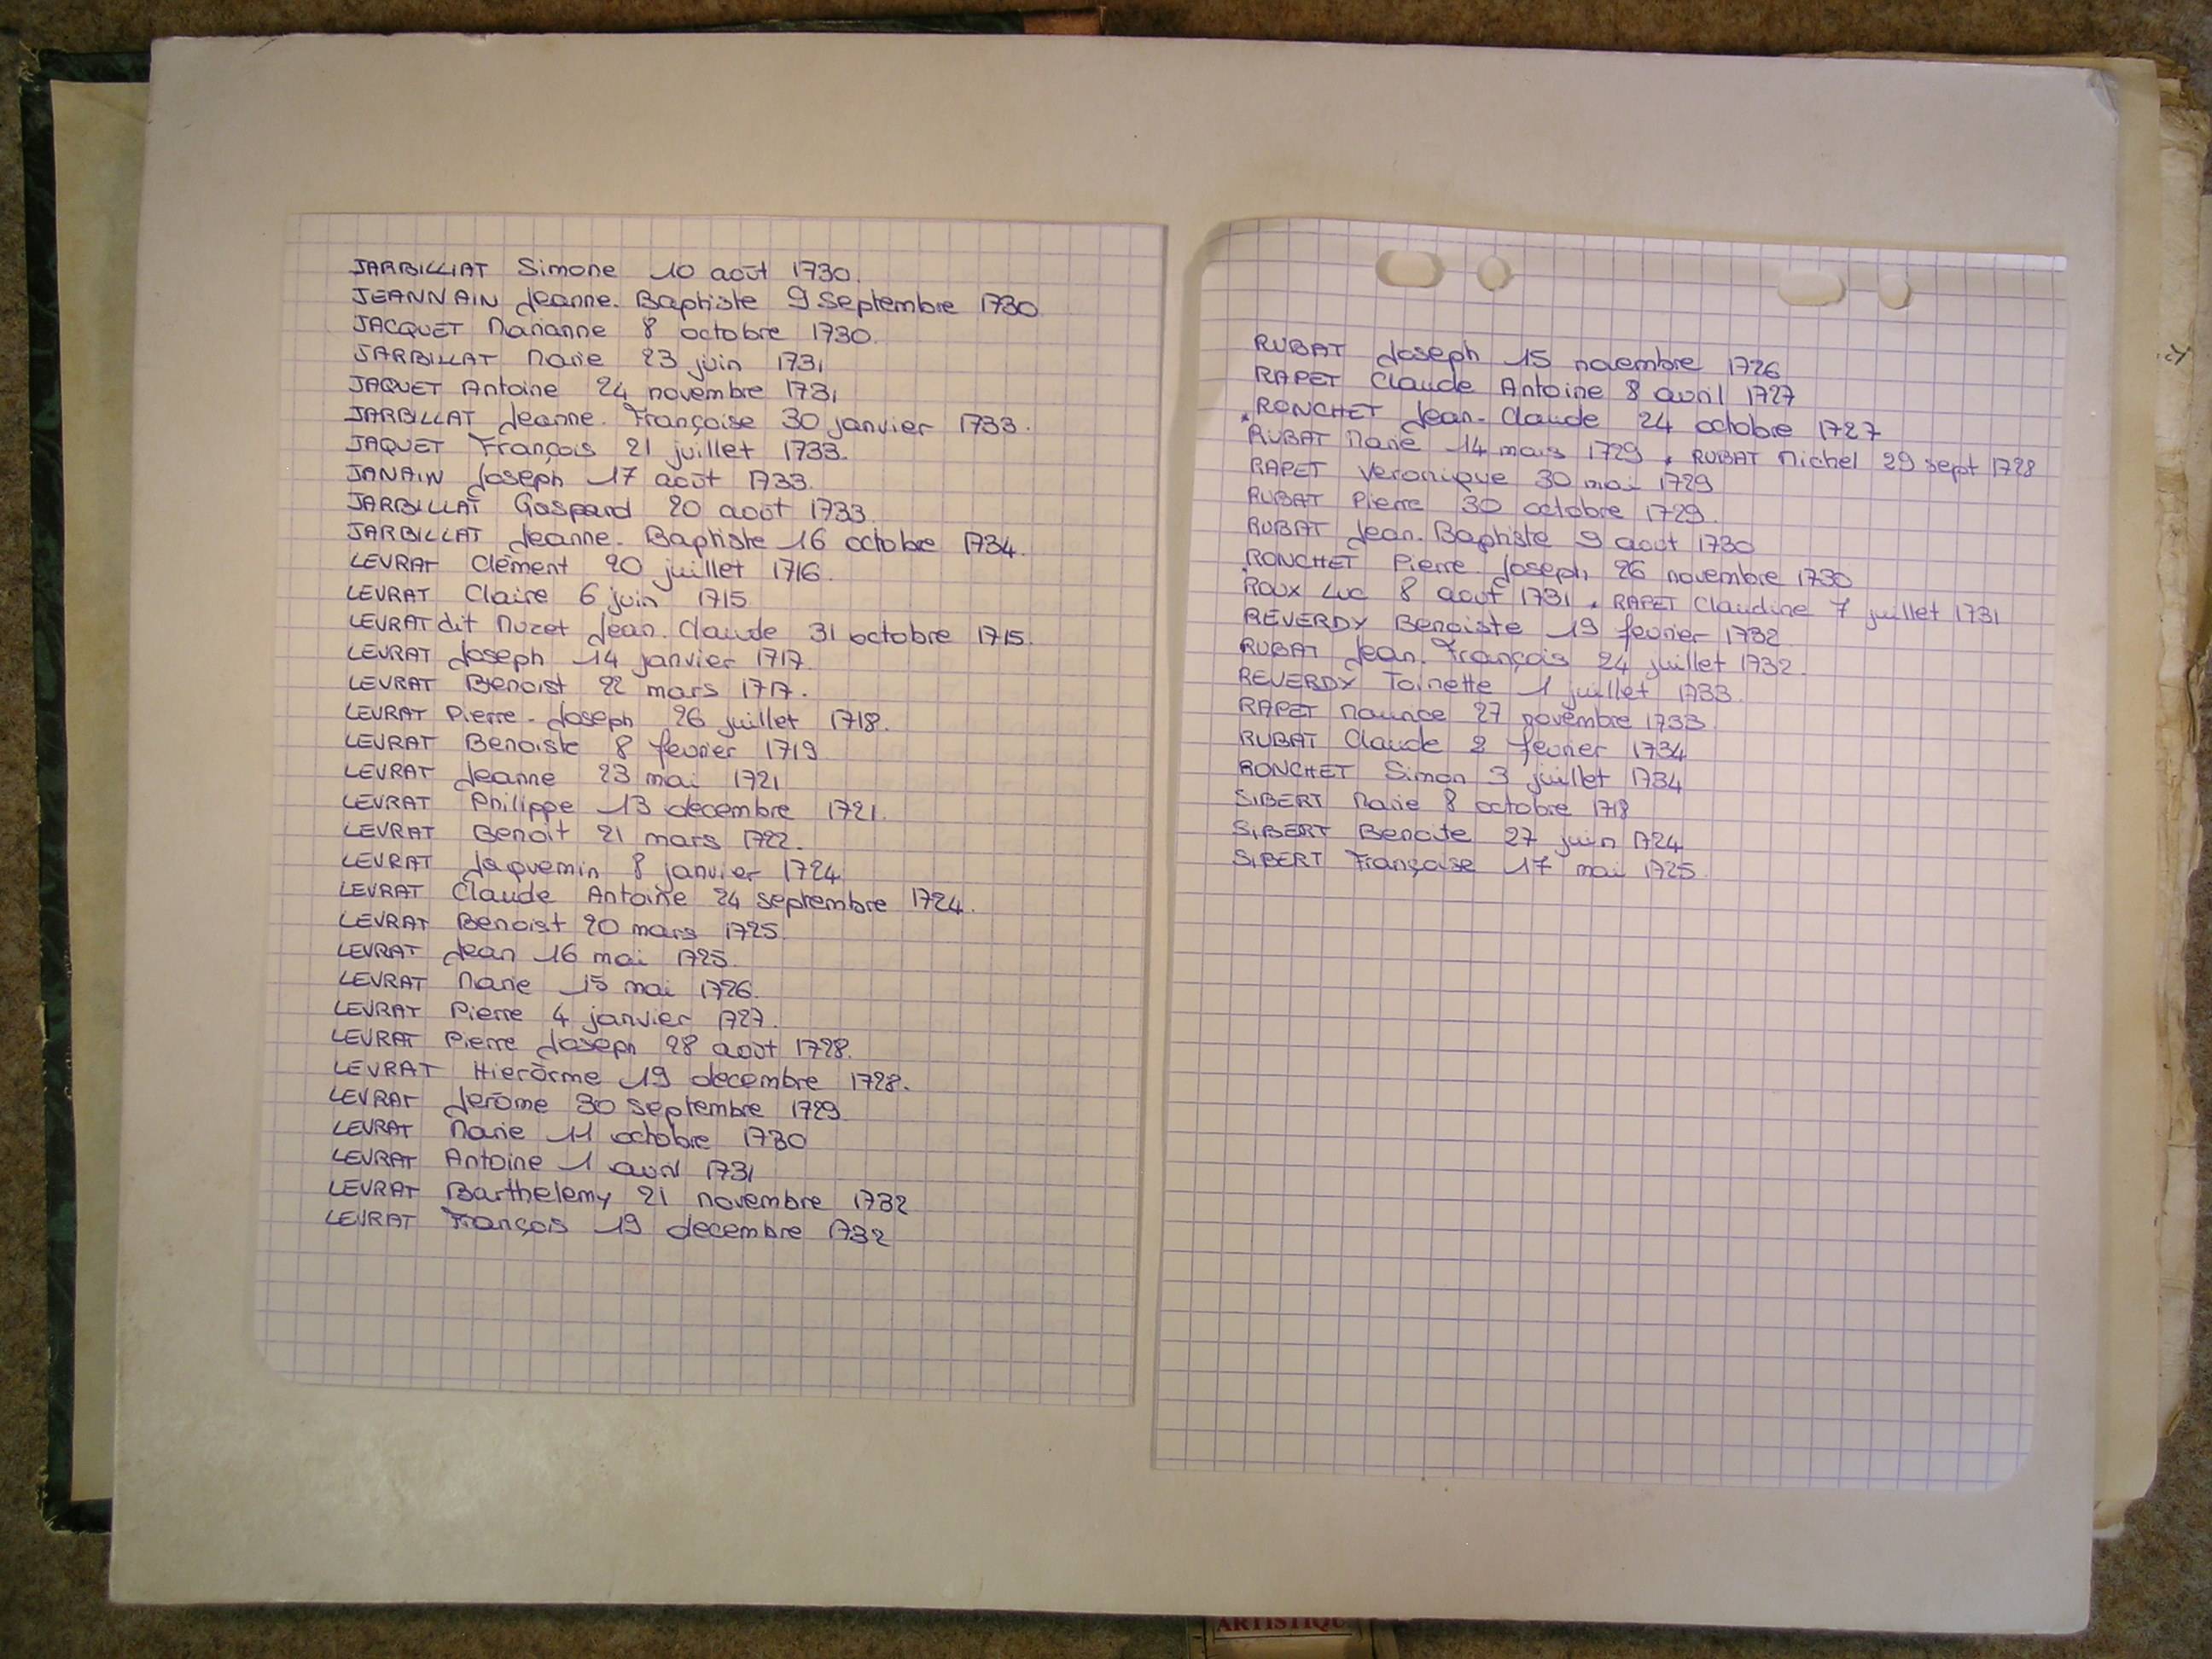 JARBILLIAT Simone 10 août 1730.
JEANNAIN Jeanne-Baptiste 9 Septembre 1730
JACQUET Marianne 8 octobre 1730.
JARBILLAT Marie 23 juin 1731
JAQUET Antoine 24 novembre 1731
JARBILLAT Jeanne-Françoise 30 janvier 1733.
JAQUET François 21 juillet 1733.
JANAIN Joseph 17 août 1733.
JARBILLAT Gaspard 20 août 1733
JARBILLAT Jeanne-Baptiste 16 octobre 1734.
LEVRAT Clément 20 juillet 1716.
LEVRAT Claire 6 juin 1715
LEVRAT dit Muzet Jean-Claude 31 octobre 1715.
LEVRAT Joseph 14 janvier 1717.
LEVRAT Benoist 22 mars 1717.
LEVRAT Pierre-Joseph 26 juillet 1718.
LEVRAT Benoiste 8 fevrier 1719
LEVRAT Jeanne 23 mai 1721
LEVRAT Philippe 13 décembre 1721.
LEVRAT Benoit 21 mars 1722.
LEVRAT Jaquemin 8 janvier 1724
LEVRAT Claude Antoine 24 septembre 1724.
LEVRAT Benoist 20 mars 1725.
LEVRAT Jean 16 mai 1725.
LEVRAT Marie 15 mai 1726.
LEVRAT Pierre 4 janvier 1727.
LEVRAT Pierre Joseph 28 août 1728.
LEVRAT Hierôrme 19 decembre 1728.
LEVRAT Jerôme 30 Septembre 1729
LEVRAT Marie 11 octobre 1730
LEVRAT Antoine 1 avril 1731
LEVRAT Barthelemy 21 novembre 1732
LEVRAT François 19 decembre 1732
RUBAT Joseph 15 novembre 1726
RAPET Claude Antoine 8 avril 1727
RONCHET Jean-Claude 24 octobre 1727
RUBAT Marie 14 mars 1729 * RUBAT Michel 29 sept 1728
RAPET Veronique 30 mai 1729
RUBAT Pierre 30 octobre 1729.
RUBAT Jean-Baptiste 9 août 1730
RONCHET Pierre-Joseph 26 novembre 1730
ROUX Luc 8 août 1731 * RAPET Claudine 7 juillet 1731
REVERDY Benoiste 19 fevrier 1732
RUBAT Jean-François 24 juillet 1732.
REVERDY Toinette 1 juillet 1733.
RAPET Maurice 27 novembre 1733.
RUBAT Claude 2 fevrier 1734
RONCHET Simon 3 juillet 1734
SIBERT Marie 8 octobre 1718
SIBERT Benoite 27 juin 1724
SIBERT Françoise 17 mai 1725.
ARTISTIQU